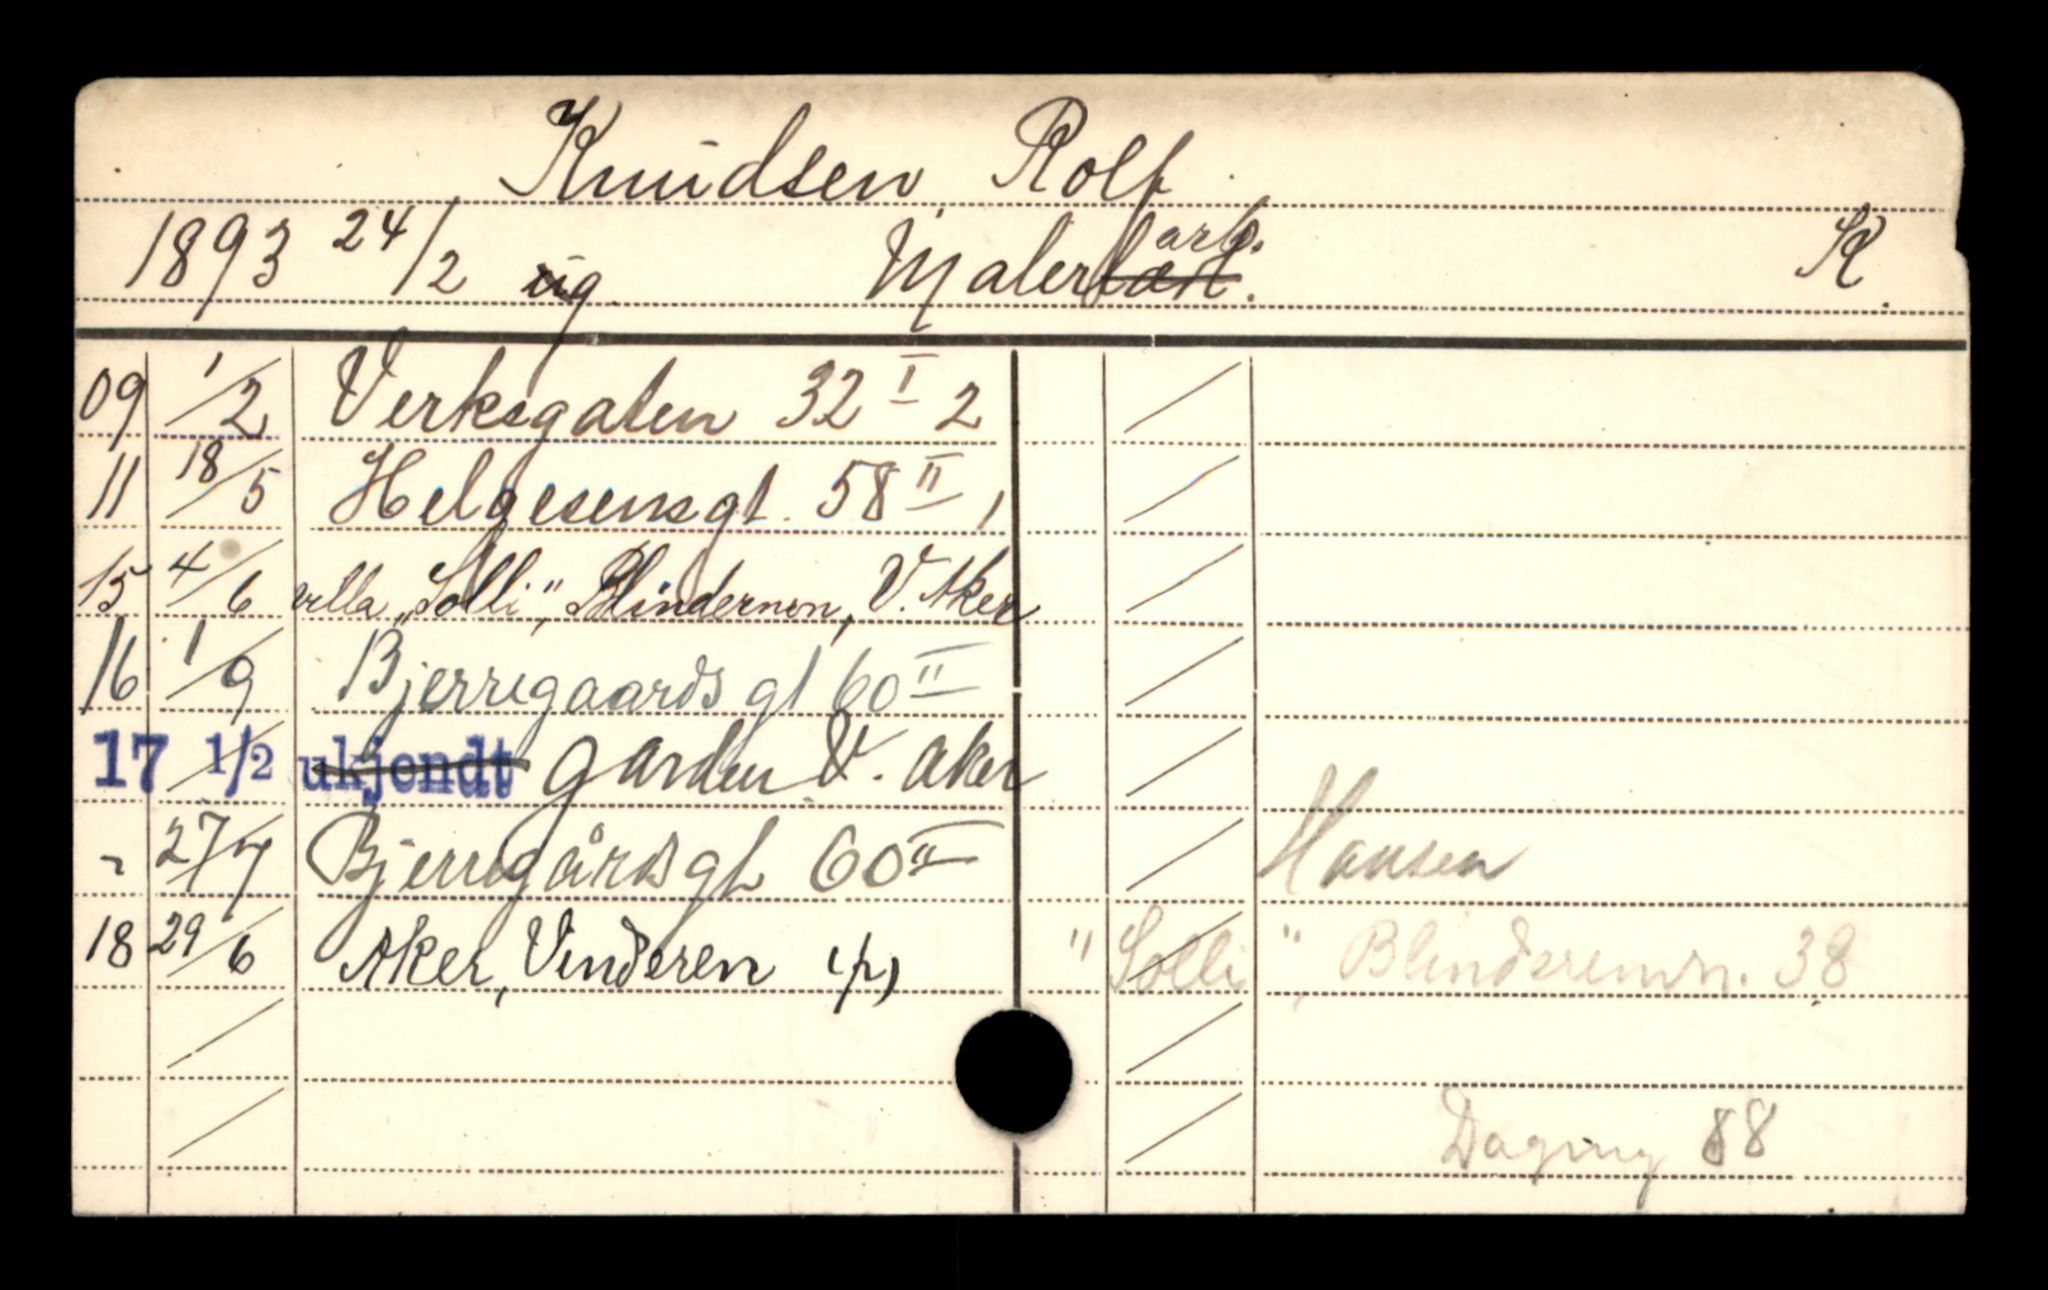 Knudsen, Rolf.
1893 24/2 ug. Maler lærl. arb. K.
09 1/2 Verksgaten 32 I 2
11 18/5 Helgesensgt. 58 II 1
15 4/6 villa „Solli", Blindernvn, V. Aker
16 1/9 Bjerregaards gt 60 II
17 1/2 ukjendt Garden V. Aker
" 27/7 Bjerregårds gt 60 II Hansen
18 29/6 Aker, Vinderen (p) "Solli", Blinderenvn. 38
88